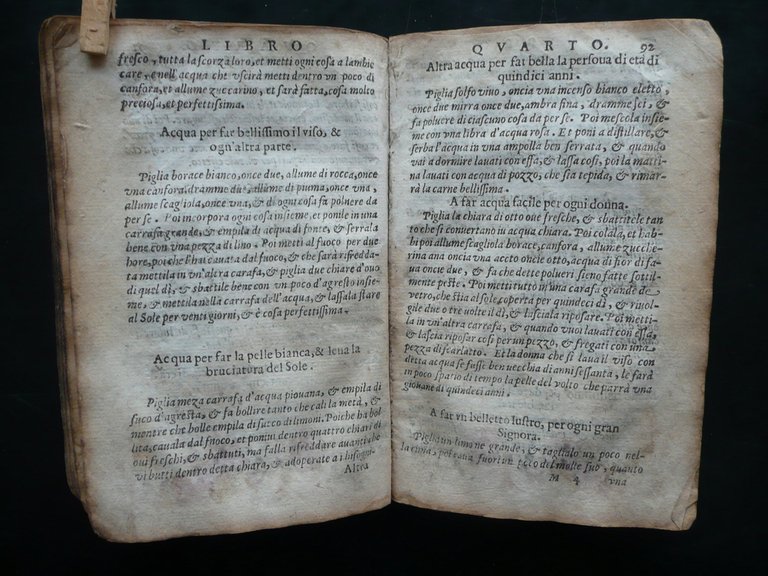 LIBRO
fresco, tutta la scorza loro, et metti ogni cosa a lambic
care, e nell'acqua che vscirà metti dentro vn poco di
canfora, et allume zuccarino, et sarà fatta, cosa molto
preciosa, et perfettissima.
Acqua per far bellissimo il viso, &
ogn'altra parte.
Piglia borace bianco, once due, allume di rocca, once
vna canfora, dramme due, allume di piuma, once vna,
allume scagliola, once vna, & di ogni cosa fà poluere da
per se. Poi incorpora ogni cosa insieme, et ponile in una
carrafa grande, & empila di acqua di fonte, & serrala
bene con vna pezza di lino. Poi metti al fuoco per due
hore, poi che l'hai cauata dal fuoco, & che sarà rifredda-
ta mettila in vn'altra carafa, & piglia due chiare d'ouo
di quel dì, & sbattile bene con vn poco d'agresto insie-
me, & mettila nella carrafa dell'acqua, & lassala stare
al Sole per venti giorni, & è cosa perfettissima.
Acqua per far la pelle bianca, & leua la
bruciatura del Sole.
Piglia meza carrafa d'acqua piouana, & empila di
suco d'agresta, & fa bollire tanto che cali la metà, &
mentre che bolle empila di succo di limoni. Poi che ha bol
lita, cauala dal fuoco, et ponui dentro quattro chiari di
oui freschi, & sbattuti, ma falla rifreddare auanti che
vi butti dentro detta chiara, & adoperate a i bisogni.
Altra
QVARTO. 92
Altra acqua per far bella la persona di età di
quindici anni.
Piglia solfo viuo, oncia vna incenso bianco eletto,
once due mirra once due, ambra fina, dramme sei, & fa
poluere di ciascuno cosa da per se. Poi mescola insie-
me con vna libra d'acqua rosa. Et poni a distillare, &
serba l'acqua in vna ampolla ben serrata, & quando
vai a dormire lauati con essa, & lassa così, poi la matti-
na lauati con acqua di pozzo, che sia tepida, & rimar-
rà la carne bellissima.
A far acqua facile per ogni donna.
Piglia la chiara di otto oue fresche, & sbattitele tan
to che si conuertano in acqua chiara. Poi colala, et hab-
bi poi allume scagliola borace, canfora, allume zucche-
rina ana oncia vna aceto oncie otto, acqua di fior di fa-
ua oncie due, & fa che dette polueri sieno fatte sottil-
mente peste. Poi metti tutto in vna carafa grande de
vetro, che stia al sole, coperta per quindeci dì, & riuol-
gile due o tre uolte il dì, & lasciala riposare. Poi metti-
la in vn'altra carrafa, & quando vuoi lauati con essa,
& lascia riposar così per un pezzo, & fregati con una
pezza di scarlatto. Et la donna che si laua il viso con
detta acqua se fusse ben uecchia di anni sessanta, le farà
in poco spatio di tempo la pelle del volto che parrà vna
giouane di quindeci anni.
A far vn belletto lustro, per ogni gran
Signora.
Piglia un limone grande, & taglialo un poco nel-
la cima, poi caua fuori un poco del molle suo, quanto
M 4 vna